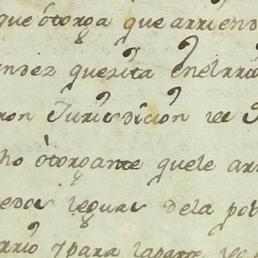 que otorga que arriend
ndez questta enelrra
ron Jurisdicion de
ho otorgante quele arr
edos leguas dela pob
rrio y para la parte